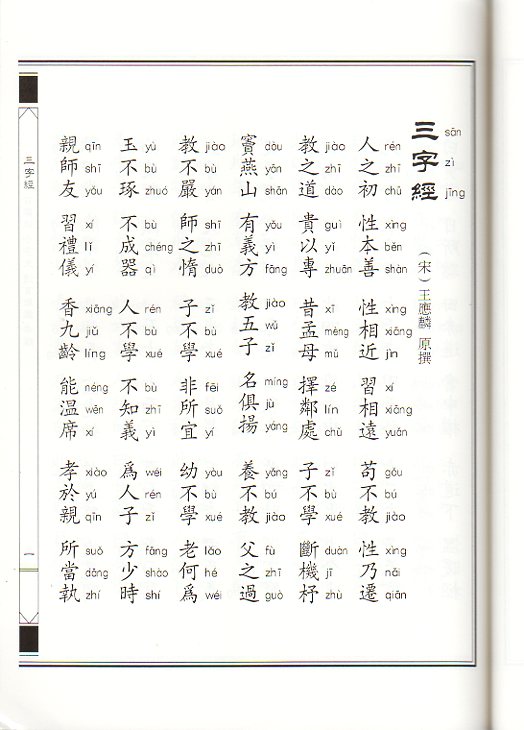 三字經
sān zì jīng
（宋）王應麟 原撰
人之初 性本善 性相近 習相遠 苟不教 性乃遷
rén zhī chū xìng běn shàn xìng xiāng jìn xí xiāng yuǎn gǒu bú jiào xìng nǎi qiān
教之道 貴以專 昔孟母 擇鄰處 子不學 斷機杼
jiào zhī dào guì yǐ zhuān xī mèng mǔ zé lín chǔ zǐ bù xué duàn jī zhù
竇燕山 有義方 教五子 名俱揚 養不教 父之過
dòu yān shān yǒu yì fāng jiào wǔ zǐ míng jù yáng yǎng bú jiào fù zhī guò
教不嚴 師之惰 子不學 非所宜 幼不學 老何為
jiào bù yán shī zhī duò zǐ bù xué fēi suǒ yí yòu bù xué lǎo hé wéi
玉不琢 不成器 人不學 不知義 為人子 方少時
yù bù zhuó bù chéng qì rén bù xué bù zhī yì wéi rén zǐ fāng shào shí
親師友 習禮儀 香九齡 能溫席 孝於親 所當執
qīn shī yǒu xí lǐ yí xiāng jiǔ líng néng wēn xí xiào yú qīn suǒ dāng zhí
三字經
一